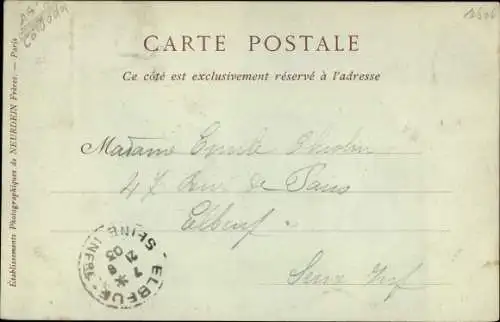 CARTE POSTALE
Ce côté est exclusivement réservé à l'adresse
Établissements Photographiques de NEURDEIN Frères. — Paris
Madame
47 de Paris
Elbeuf
Seine Inf
ELBEUF
SEINE INFRE
7
21
03